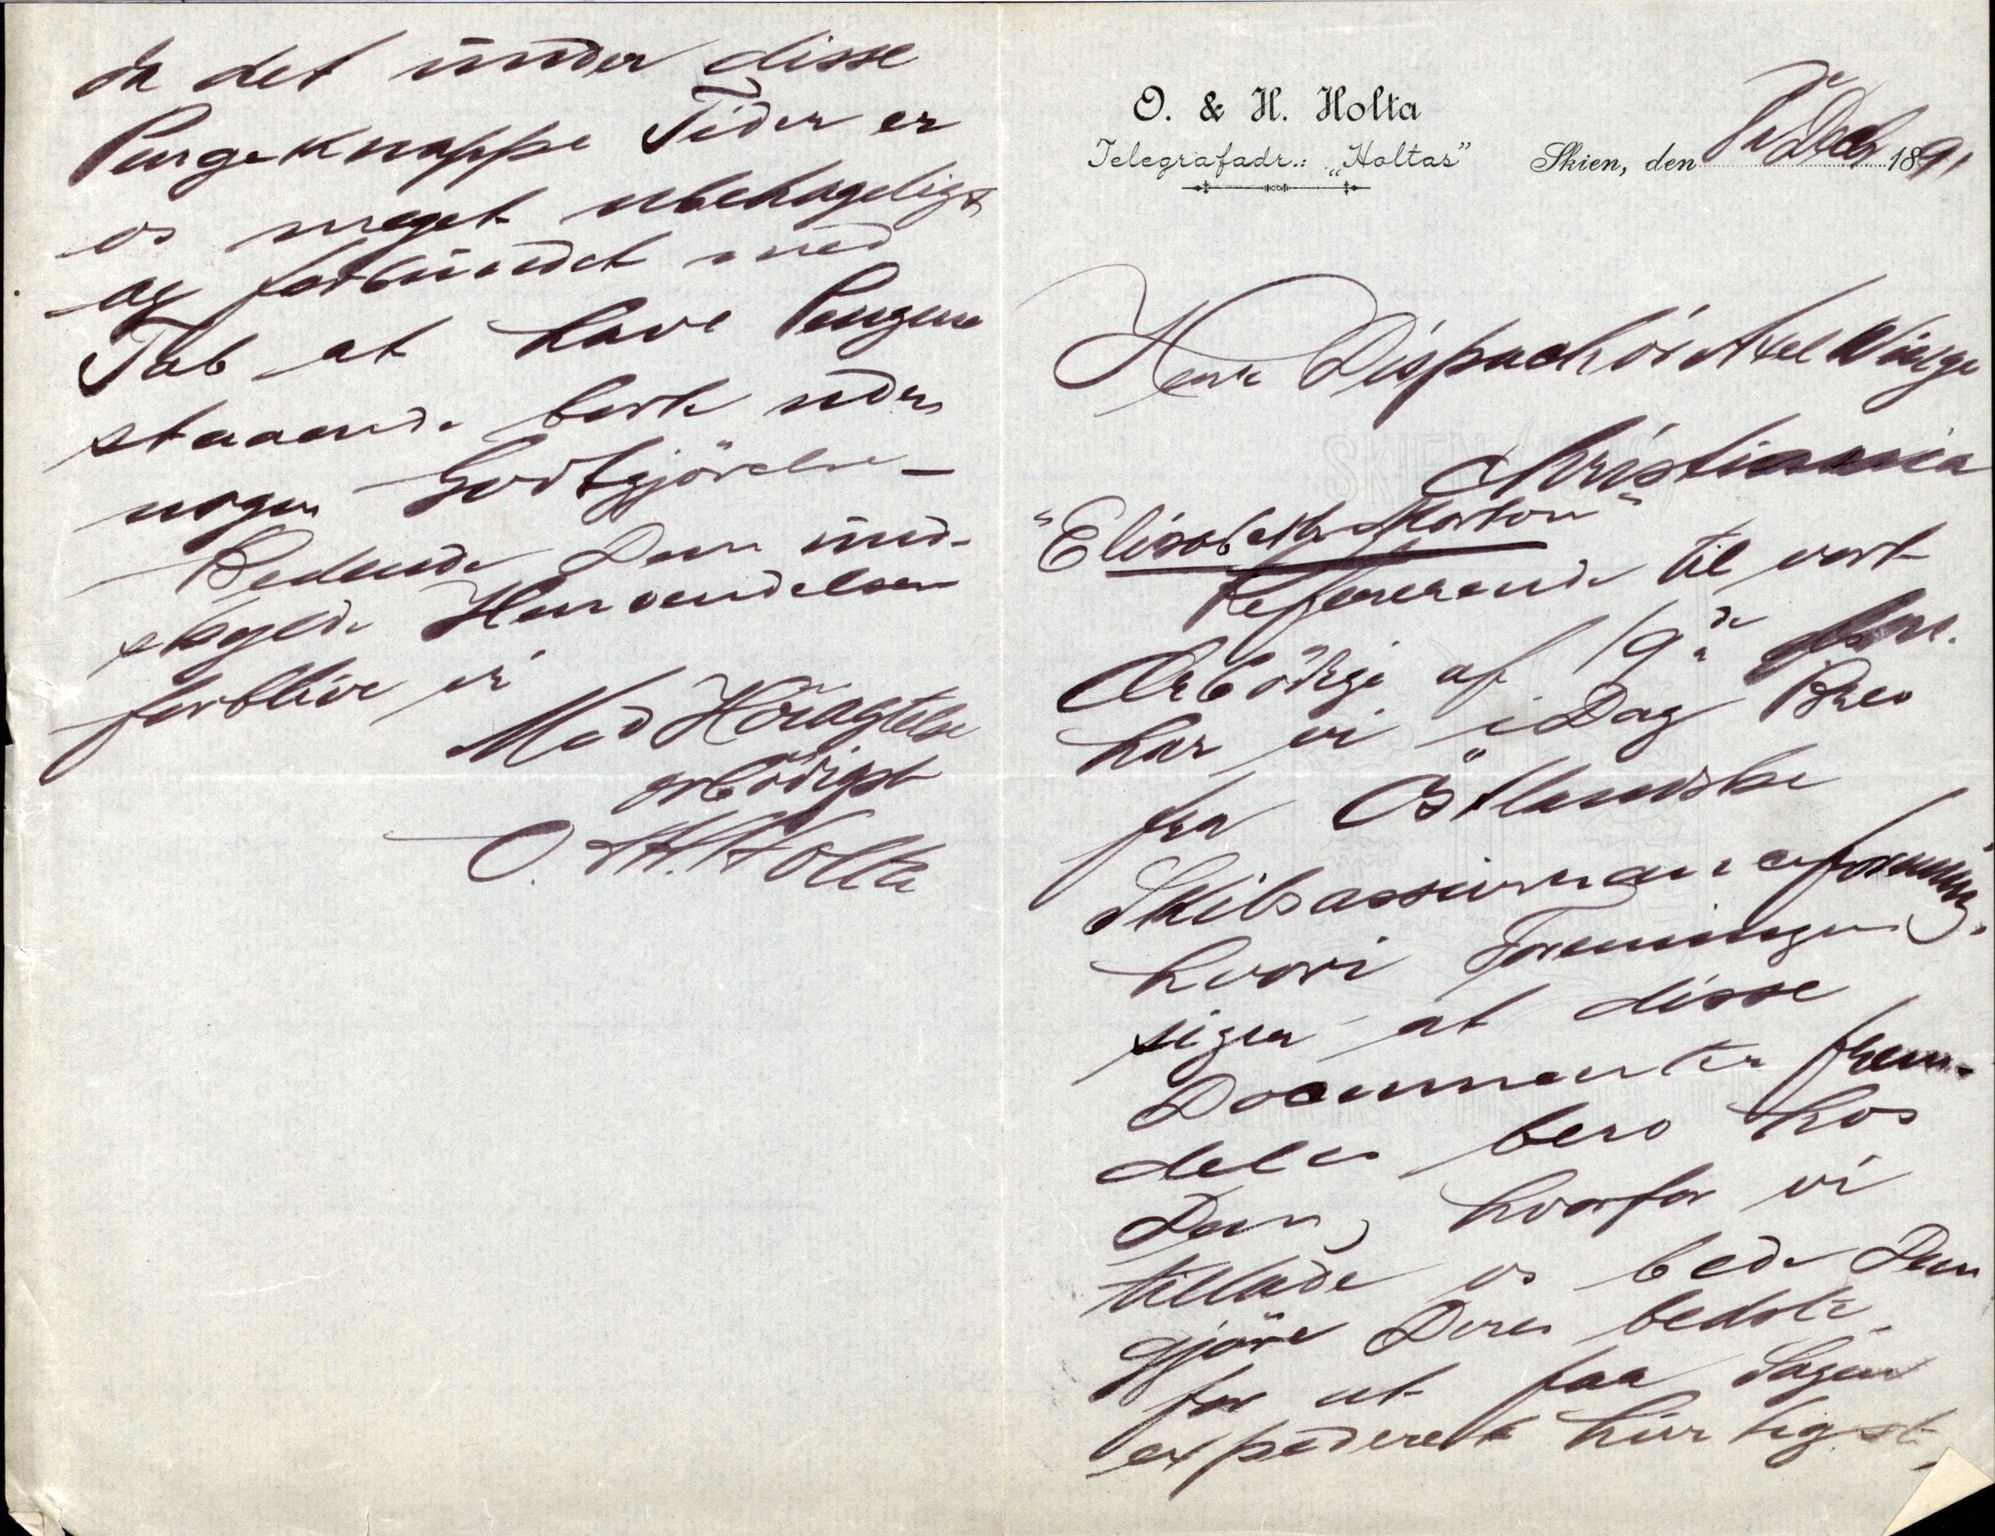 O. & H. Holta
Telegrafadr.: „Holtas"
Skien, den Dec 1891
Herr Dispachör Axel Winge
Christiania
"Elisabeth Morton"
Refererende til vort
Ærbödige af 19de
har vi i Dag Brev
fra Östlandske
Skibsassuranceforening,
hvori Foreningen
siger at disse
Documenter frem-
deles bero hos
Dem, hvorfor vi
tillade os bede Dem
gjöre Deres bedste
for at faa Sagen
expederet hurtigst,
da det under disse
Pengeknappe Tider er
os meget ubehageligt
og forbundet med
Tab at have Pengene
staaende bort uden
nogen Godtgjörelse –
Bedende Dem und-
skylde Henvendelsen
forblive vi
Med Höiagtelse
ærbödigst
O. & H. Holta